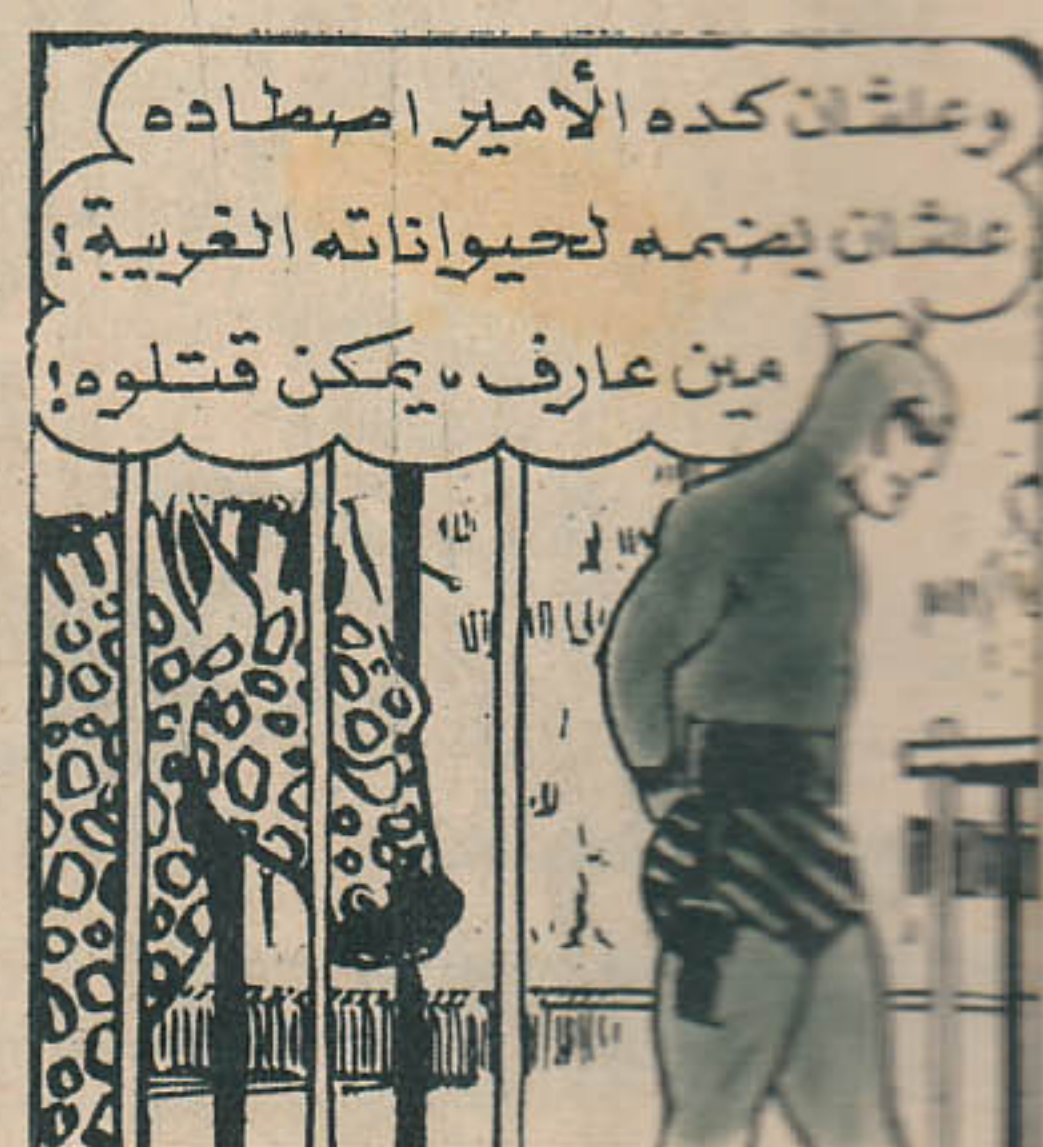 وعلشان كده الأمير اصطاده
علشان يضمه لحيواناته الغريبة!
مين عارف، يمكن قتلوه!